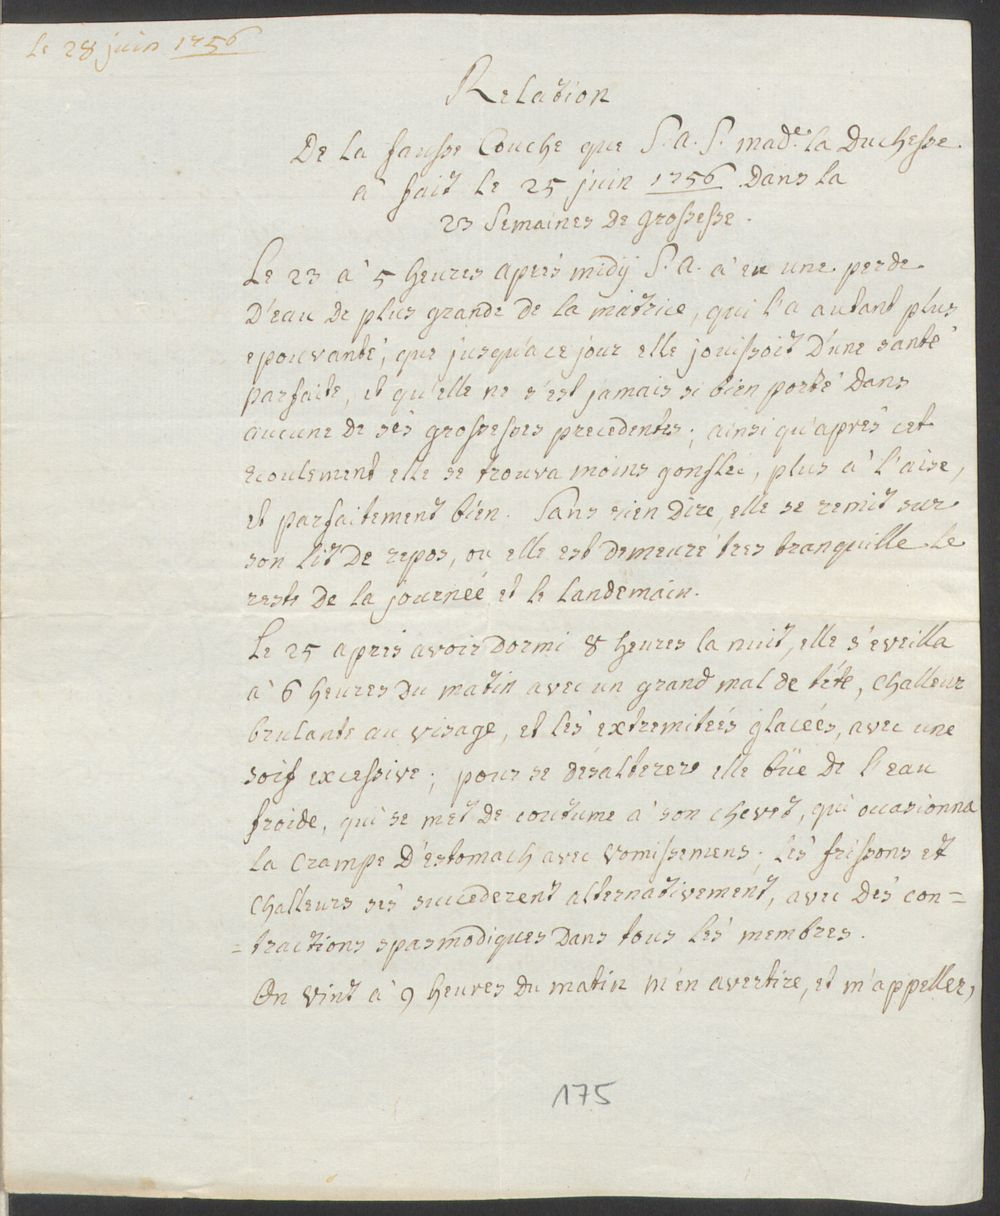 Le 28 juin 1756
Relation
De la fausse Couche que S. A. S. made. la Duchesse
a fait le 25 juin 1756 Dans la
23 Semaines de grossesse.
Le 23 à 5 heures aprés midÿ S. A. à eu une perde
D'eau De plus grande de la matrice, qui l'a autant plus
epouvanté, que jusqu'a ce jour elle jouissoit D'une santé
parfaite, et qu'elle ne s'est jamais si bien porté Dans
aucune De sés grossesses precedentes; ainsi qu'aprés cet
ecoulement elle se trouva moins gonfleé, plus à l'aise,
et parfaitement bien. Sans rien Dire, elle se remit sur
son lit De repos, ou elle est Demeuré tres tranquille le
reste De la journeé et le landemain.
Le 25 aprés avoir Dormi 8 heures la nuit, elle s'eveilla
à 6 heures Du matin avec un grand mal de téte, challeur
brulante au visage, et lés extremiteés glaceés, avec une
soif excessive; pour se désalterer elle büe De l'eau
froide, qui se met De coutume à son chevet, qui occasionna
la Crampe D'estomach avec vomissemens; lés frissons et
challeurs sés succederent alternativement, avec Dés con=
=tractions spasmodiques Dans tous lés membres.
On vint à 9 heures Du matin m'en avertire, et m'appeller,
175